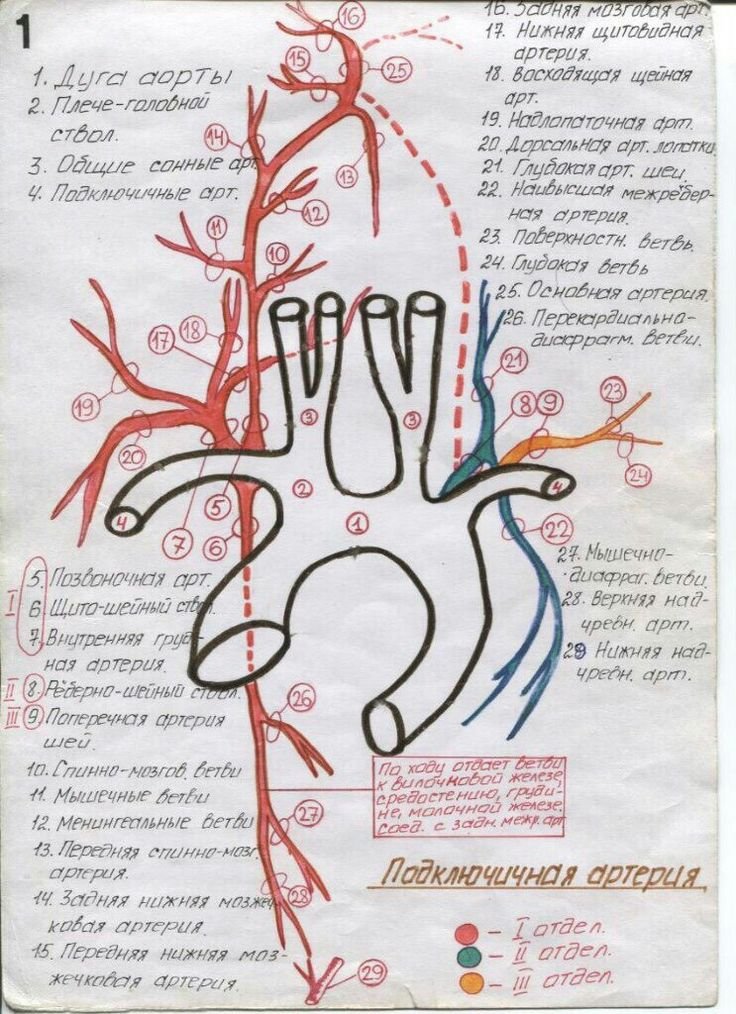 1
1. Дуга аорты
2. Плече-головной
ствол.
3. Общие сонные арт
4. Подключичные арт.
16. Задняя мозговая арт.
17. Нижняя щитовидная
артерия.
18. Восходящая шейная
арт.
19. Надлопаточная арт.
20. Дорсальная арт. лопатки.
21. Глубокая арт. шеи.
22. Наивысшая межребер-
ная артерия.
23. Поверхностн. ветвь.
24. Глубокая ветвь
25. Основная артерия.
26. Перекардиально-
диафрагм. ветви.
16
15
25
14
13
12
11
10
18
17
19
20
21
23
8
9
24
3
3
2
1
4
4
5
7
6
22
I
5. Позвоночная арт.
6. Щито-шейный ствол.
7. Внутренняя груд-
ная артерия.
II 8. Рёберно-шейный ствол.
III 9. Поперечная артерия
шей.
10. Спинно-мозгов. ветви
11. Мышечные ветви
12. Менингеальные ветви
13. Передняя спинно-мозг.
артерия.
14. Задняя нижняя мозжеч-
ковая артерия.
15. Передняя нижняя моз-
жечковая артерия.
27. Мышечно-
диафраг. ветви.
28. Верхняя над-
чревн. арт.
29 Нижняя над-
чревн. арт.
26
27
28
29
По ходу отдает ветви
к вилочковой железе,
средостению, груди-
не, молочной железе,
соед. с задн. межр. арт
Подключичная артерия
– I отдел.
– II отдел.
– III отдел.